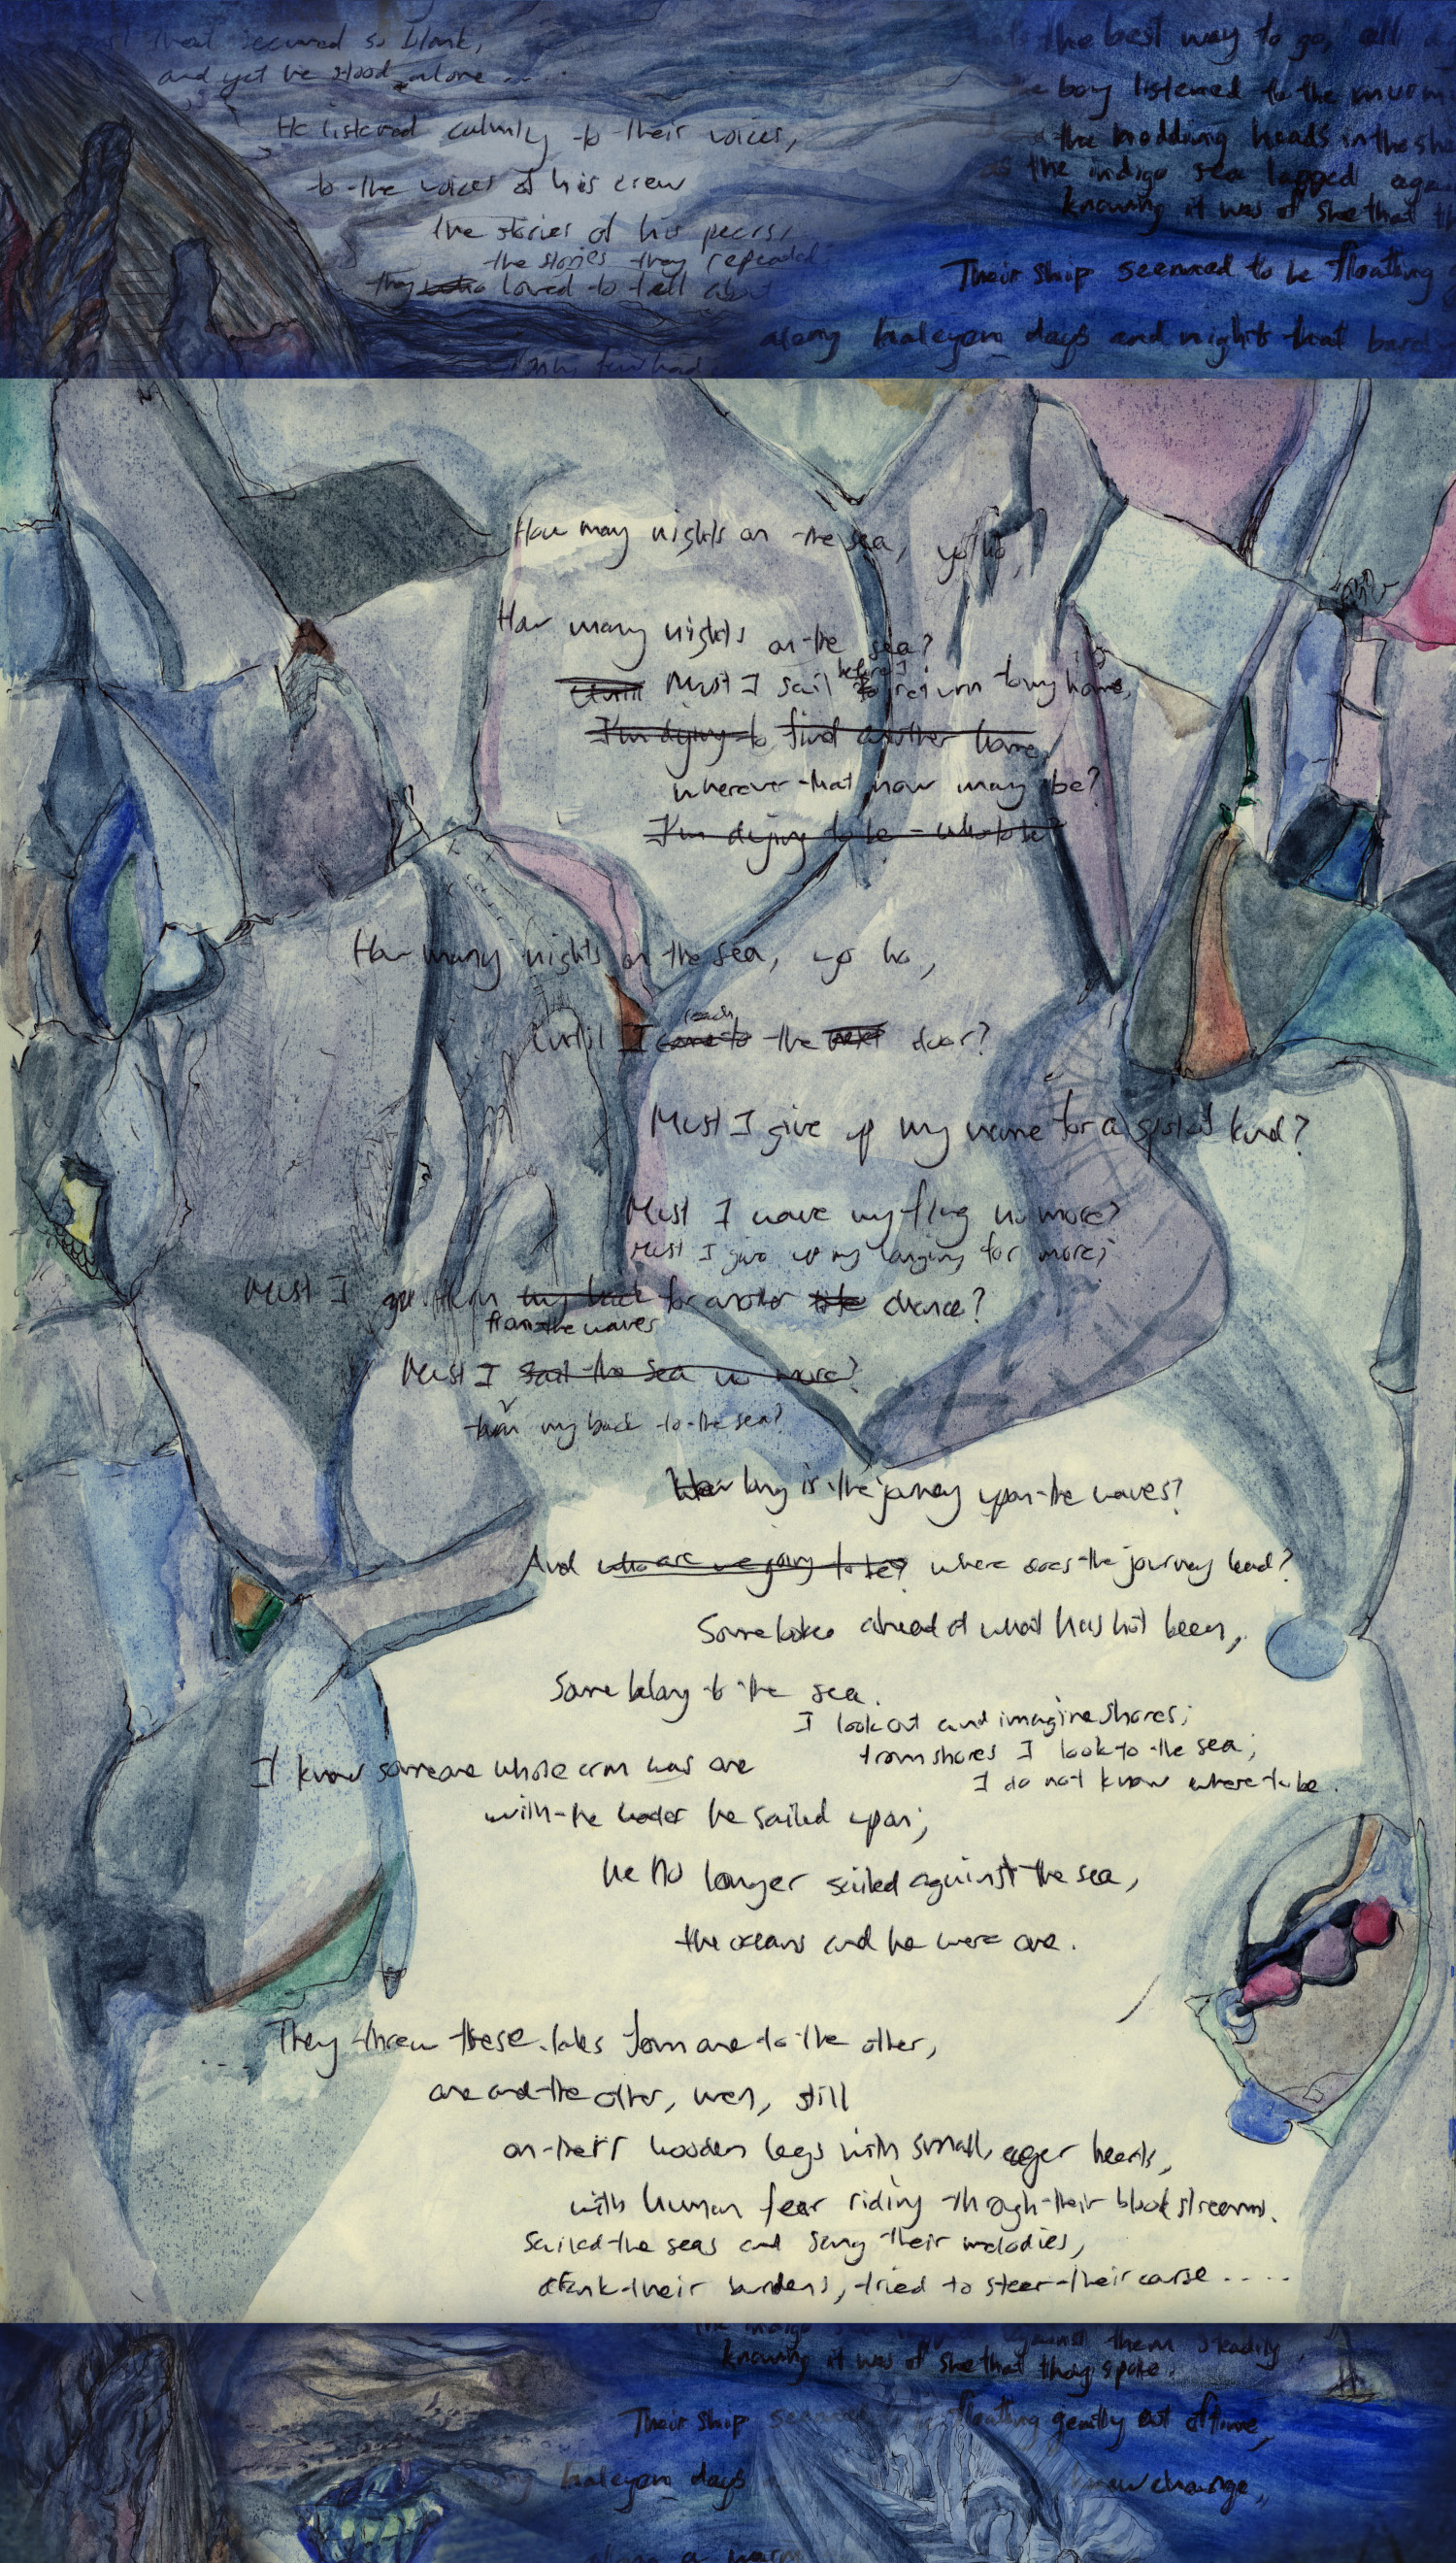 that seemed so blank,
and yet he stood alone ....
He listened calmly to their voices,
to the voices of his crew
the stories of his peers,
the stories they repeated
they loved to tell about
the best way to go, all
boy listened to the murm
the nodding heads in the sha
the indigo sea lapped aga
knowing it was of she that th
Their ship seemed to be floating
along halcyon days and nights that
How many nights on the sea, yo ho,
How many nights on the sea?
Until Must I sail before I to return to my home,
I'm dying to find another home,
wherever that now may be?
I'm dying to be - who to be?
How many nights on the sea, yo ho,
until I reach come to the next door?
Must I give up my name for a kind?
Must I wave my flag no more?
Must I give up my longing for more;
Must I turn my back for another chance?
from the waves
Must I sail the sea no more?
turn my back to the sea?
How long is the journey upon the waves?
And who are we going to be? where does the journey lead?
Some look ahead at what has not been,
Some belong to the sea.
I look out and imagine shores;
from shores I look to the sea;
I do not know where to be.
I know someone whose arm was one
with the water he sailed upon;
he no longer sailed against the sea,
the oceans and he were one.
.... They threw these tales from one to the other,
one and the other, men, still
on their wooden legs with small, eager hearts,
with human fear riding through their bloodstreams.
Sailed the seas and sang their melodies,
drank their burdens, tried to steer their course ....
against them steadily,
knowing it was of she that they spoke.
Their ship floating gently out of time,
halcyon days
change,
along a warm